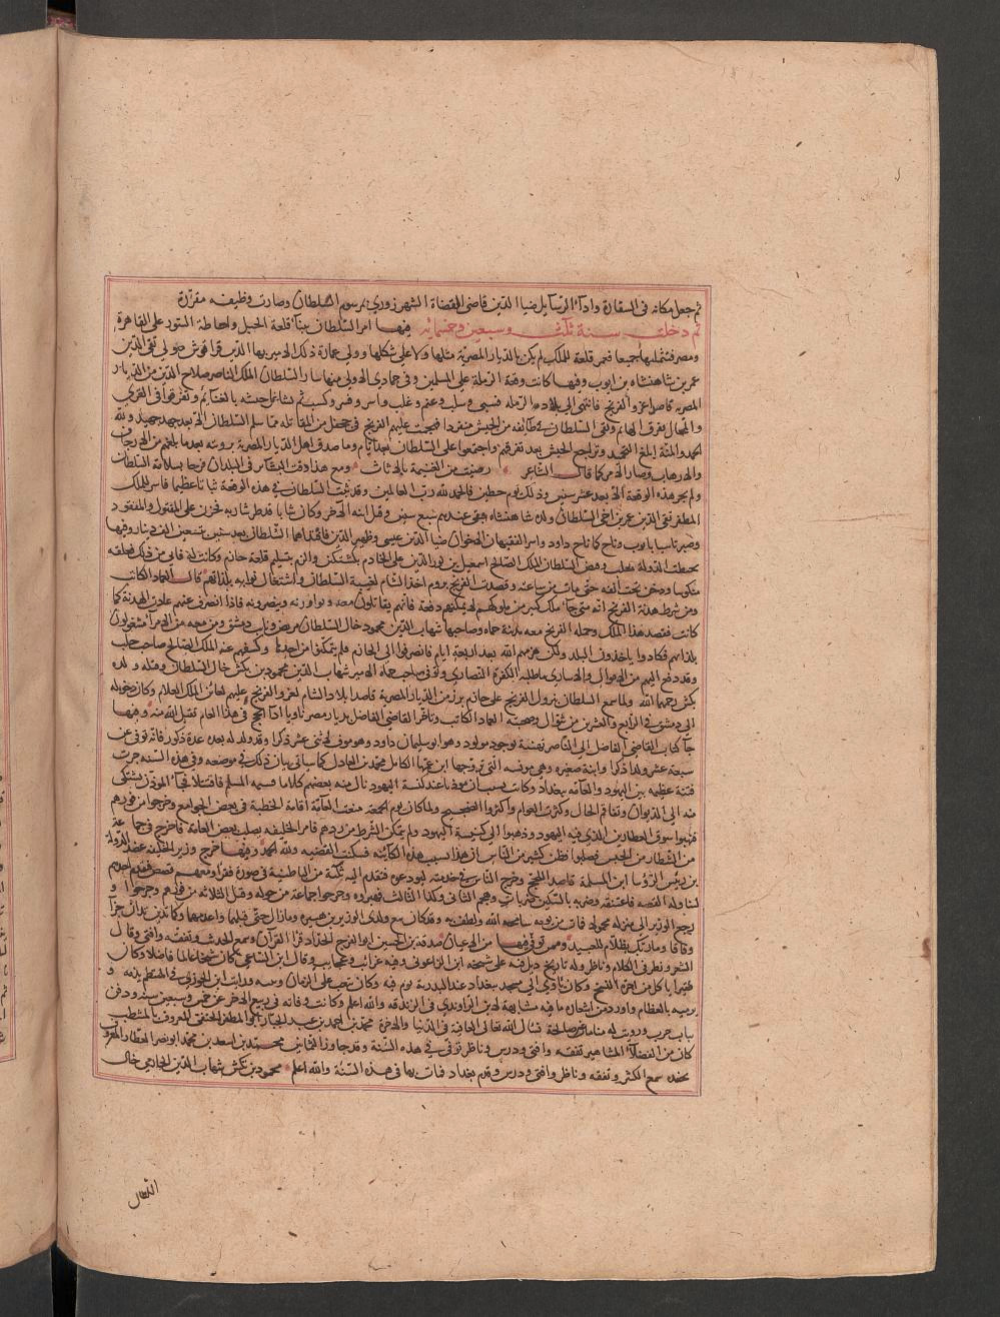 ثم جعل مكانه فى السفارة وادآء الرسآيل ضيا الدين قاضى القضاة الشهرزورى بمرسوم السلطان وصارت وظيفه مقررة
ثم دخلت سنة ثلث وسبعين وخمسمائه فيها امر السلطان ببنآء قلعة الجبل واحاطة السور على القاهرة
ومصر فشملهما جميعا فعمر قلعة للملك لم يكن بالديار المصرية مثلها ولا على شكلها وولى عمارة ذلك الامير بها الدين قراقوش مولى تقى الدين
عمر بن شاهنشاه بن ايوب وفيها كانت وقعة الرملة على المسلمين وفى جمادى الاولى منها سار السلطان الملك الناصر صلاح الدين من الديار
المصريه قاصدا غزو الفرنج فانتهى الى بلاد الرمله فسبى وسلب وغنم وغلب واسر وقسر وكسب ثم تشاغل جيشه بالغنايم وتفرقوا فى القرى
والمحال بقى السلطان فى طايفه من الجيش منفردا فهجمت عليهم الفرنج فى جحفل من المقاتله فما سلم السلطان الا بعد جهد جهيد ولله
الحمد والمنة ثم تراجع الجيش بعد تفرقهم واجتمعوا على السلطان بعد ايام وما صدق اهل الديار المصرية برويته بعد ما بلغهم من الارجاف
والارهاب وصار الامر كما قال الشاعر رضيت من الغنيمة بالاياب ومع هذا دقت البشآير فى البلدان فرحا بسلامة السلطان
ولم يجر هذه الوقعة الا بعد عشر سنين وذلك يوم حطين فالحمد لله رب العالمين وقد ثبت السلطان فى هذه الوقعة ثباتا عظيما فاسر للملك
المظفر تقى الدين عمر بن اخى السلطان ولده شاهنشاه فبقى عندهم سبع سنين وقتل ابنه الآخر وكان شابا قد طر شاربه فحزن على المقتول والمفقود
وصبر تاسيا بايوب وناح كما ناح داود واسر الفقيهان الاخوان ضيا الدين عيسى وظهير الدين فافتداهما السلطان بعد سنين بتسعين الف دينار وفيها
تخبطت الدولة بحلب وقبض السلطان الملك الصالح اسمعيل بن نور الدين على الخادم كمشتكين والزم بتسليم قلعة حارم وكانت له فابى من ذلك فعلقه
منكوسا ودخن تحت انفه حتى مات من ساعته وقصدت الفرنج يروم اخذ الشام لغيبة السلطان واشتغال نوابه بلذاتهم قال العماد الكاتب
ومن شرط هدنة الفرنج انه متى جآء ملك كبير من ملوكهم لا يمكنهم دفعه فانهم يقاتلون معه ويوازرونه وينصرونه فاذا انصرف عنهم عادت الهدنة كما
كانت فقصد هذا الملك وجملة الفرنج معه مدينة حماه وصاحبها شهاب الدين محمود خال السلطان مريض ونايب دمشق ومن معه من الامرآء مشغولون
بلذاتهم فكادوا ياخذون البلد ولكن هزمهم الله بعد اربعة ايام فانصرفوا الى حارم فلم يتمكنوا من اخذها وكشفهم عنه الملك الصالح صاحب حلب
وقد دفع اليهم من الاموال والاسارى ما طلبه الكفرة النصارى وتوفى صاحب حماه الامير شهاب الدين محمود بن تكش خال السلطان وقبله ولده
تكش رحمهما الله ولما سمع السلطان بنزول الفرنج على حارم برز من الديار المصرية قاصدا بلاد الشام لغزو الفرنج عليهم لعائن الملك العلام وكان دخوله
الى دمشق فى الرابع والعشرين من شوال وصحبته العماد الكاتب وتاخر القاضى الفاضل بديار مصر ناويا ادآء الحج فى هذا العام تقبل الله منه وفيها
جآء كتاب القاضى الفاضل الى الناصر يهنئه بوجود مولود وهو ابو سليمان داود وهو موف لاثنى عشر ذكرا وقد ولد له بعده عدة ذكور فانه توفى عن
سبعة عشر ولدا ذكرا وابنة صغيره وهى مونسه التى تزوجها ابن عمها الكامل محمد بن العادل كما سياتى بيان ذلك فى موضعه وفى هذه السنه جرت
فتنة عظيمه بين اليهود والعآمه ببغداد وكانت بسبب ان موذنا عند كنسة اليهود نال منه بعضهم كلاما فسبه المسلم فاقتتلا فجآء الموذن يشتكى
منه الى الديوان وتفاقم الحال وكثرت العوام واكثروا الضجيج ولما كان يوم الجمعة منعت العآمة اقامة الخطبة فى بعض الجوامع وخرجوا من فورهم
فنهبوا سوق العطارين الذى فيه اليهود وذهبوا الى كنيسة اليهود ولم يتمكن الشرط من ردهم فامر الخليفه بصلب بعض العامة فاخرج فى جماعة
من الشطار من الحبس فصلبوا فظن كثير من الناس ان هذا بسبب هذه الكآينه فسكنت القضيه ولله الحمد وفيها خرج وزير الخليفه عضد الدولة
بن رئيس الرؤسا ابن المسلمة قاصدا للحج وخرج الناس فى خدمته ليودعوه فتقدم اليه ثلاثة من الباطنية فى صورة فقرا ومعهم قصص فتقدم احدهم
ليناوله القصه فاعتنقه وضربه بالسكين ضربات وهجم الثانى وكذا الثالث فهبروه وجرحوا جماعة من حوله وقتل الثلاثه من فورهم وحرقوا و
رجع الوزير الى منزله محمولا فمات من يومه سامحه الله ولطف به وقد كان مع ولدى الوزير بن هبيره وما زال حتى قتلهما واعدمهما وكما تدين تدان جزآء
وفاقا وما ربك بظلام للعبيد وممن توفى فيها من الاعيان صدقة بن الحسين ابو الفرج الحداد قرا القرآن وسمع الحديث وتفقه وافتى وقال
الشعر ونظر فى الكلام وناظر وله تاريخ ذيل فيه على شيخه ابن الزاغونى وفيه غرائب وعجايب وقال ابن الساعى كان شيخا عالما فاضلا وكان
فقيرا ياكل من اجرة النسخ وكان ياوى الى مسجد ببغداد عند البدرية يوم فيه وكان يعتب على الزمان وبنيه ورايت ابن الجوزى فى المنتظم يذمه و
يرميه بالعظائم واورد من اشعاره ما فيه مشابهة لابن الراوندى فى الزندقه والله اعلم وكانت وفاته فى ربيع الاخر عن خمس وسبعين سنه ودفن
بباب حرب ورويت له منامات غير صالحة نسال الله تعالى العافية فى الدنيا والاخرة محمد بن احمد بن عبد الجبار ابو المظفر الحنفى المعروف بالمشطب
كان من الفضلآء المشاهير تفقه وافتى ودرس وناظر توفى فى هذه السنة وقد جاوز الثمانين محمد بن اسعد بن محمد ابو نصر العطار المعروف
بحفده سمع الكثير وتفقه وناظر وافتى ودرس وقدم بغداد فمات بها فى هذه السنة والله اعلم محمود بن تكش شهاب الدين الحارمى خال
السلطان